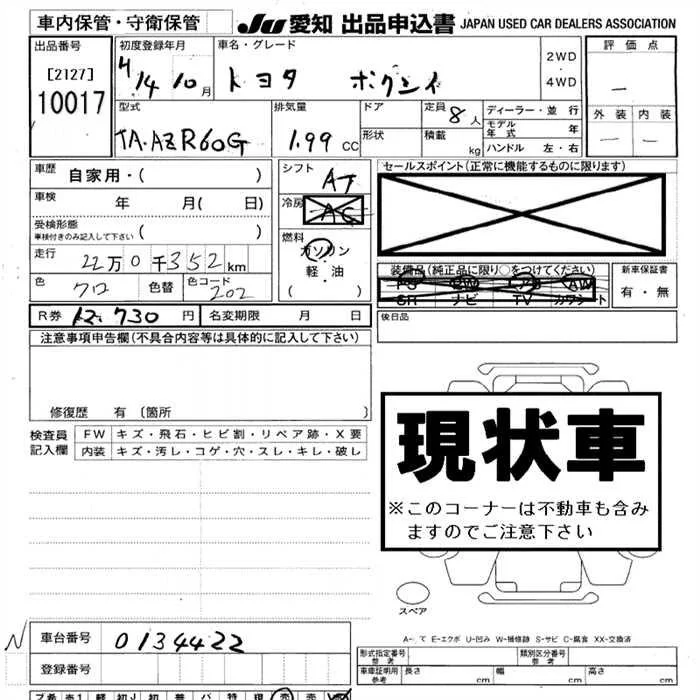 車内保管・守衛保管 JU 愛知 出品申込書 JAPAN USED CAR DEALERS ASSOCIATION
出品番号 初度登録年月 車名・グレード 評価点
[2127] 10017 H14 10月 トヨタ ボクシィ 2WD 4WD 一
外装 内装
一 一
型式 排気量 ドア 定員 8人 ディーラー・並行
TA-AZR60G 1.99 CC 形状 積載 kg モデル年式 年
ハンドル 左・右
車歴 自家用・( ) シフト AT セールスポイント(正常に機能するものに限ります)
車検 年 月( 日) 冷房 AC
受検形態
車検付きのみ記入して下さい ( ) 燃料 ガソリン
走行 22万0千352km 軽・油
( )
装備品(純正品に限り○をつけてください) 新車保証書
PS PW エアB AW 有・無
SR ナビ TV カワシート
色 クロ 色替 色コード 202
後日品
R券 12,730円 名変期限 月 日
注意事項申告欄(不具合内容等は具体的に記入して下さい)
修復歴 有 〔箇所 〕
検査員記入欄 FW キズ・飛石・ヒビ割・リペア跡・X要
内装 キズ・汚レ・コゲ・穴・スレ・キレ・破レ
現状車
※このコーナーは不動車も含み
ますのでご注意下さい
スペア
E-エクボ U-凹み W-補修跡 S-サビ C-腐食 XX-交換済
N 車台番号 0134422
登録番号
形式指定番号 参考 類別区分番号 参考
車庫証明用 参考 長さ 幅 高さ